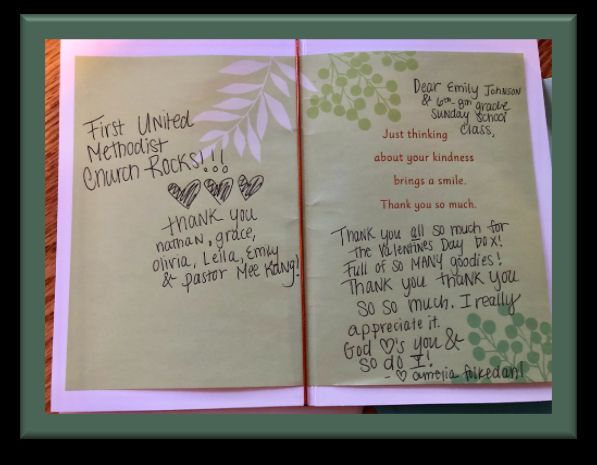 First United
Methodist
Church Rocks!!!
Thank you
nathan, grace,
olivia, Leila, Emily
& pastor Mee Kang!
Dear Emily Johnson
& 6th-8th grade
Sunday School
Class,
Just thinking
about your kindness
brings a smile.
Thank you so much.
Thank you all so much for
the Valentines Day box!
Full of so MANY goodies!
Thank you thank you
so so much. I really
appreciate it.
God ♡'s you &
so do I!
- ♡ amelia